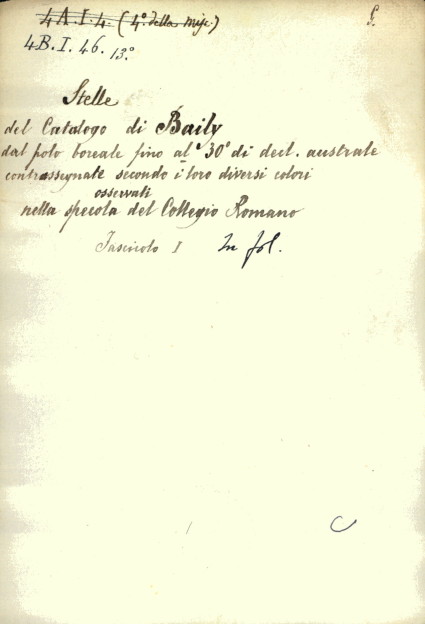 4 A.I.4. (4º della Misc.)
4B.I.46. 13º
Stelle
del Catalogo di Baily
dal polo boreale fino al º30º di decl. australe
contrassegnate secondo i loro diversi colori
osservati
nella specola del Collegio Romano
Fascicolo I In fol.